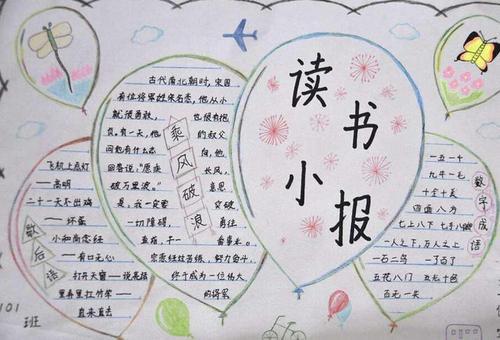 读书
小报
古代南北朝时,宋国
有位将军姓宗名悫,他从小
就很勇敢,也很有抱
负。有一天,他的叔父
问他有什么志向,他
回答说:“愿乘长风,
破万里浪。”意思
是:我一定要突破
一切障碍,勇往
直前,干一番事业。
宗悫经过苦练,努力奋斗,
终于成为一位伟大
的将军
乘风破浪
飞机上点灯
——高明
二十一天不出鸡
——坏蛋
小和尚念经
——有口无心
打开天窗——说亮话
里弄里扛竹竿——
直来直去
歇后语
一五一十
九牛一毛
十全十美
四面八方
七上八下 七手八脚
一人之下,万人之上
一石二鸟 一了百了
五花八门 五光十色
百无一失
数字成语
101
班